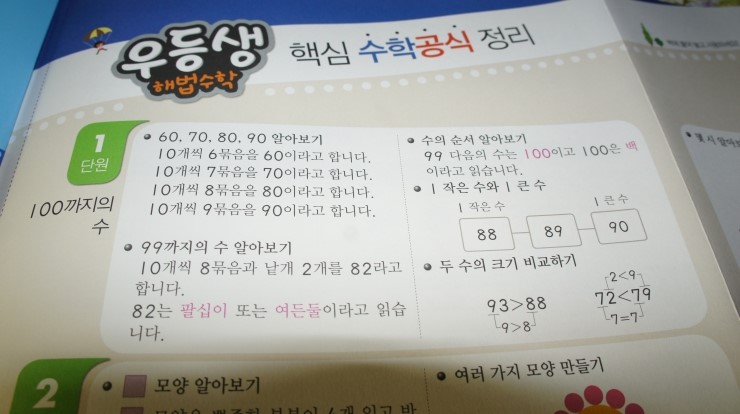 우등생
해법수학
핵심 수학공식 정리
1
단원
100까지의
수
• 60, 70, 80, 90 알아보기
10개씩 6묶음을 60이라고 합니다.
10개씩 7묶음을 70이라고 합니다.
10개씩 8묶음을 80이라고 합니다.
10개씩 9묶음을 90이라고 합니다.
• 99까지의 수 알아보기
10개씩 8묶음과 낱개 2개를 82라고
합니다.
82는 팔십이 또는 여든둘이라고 읽습
니다.
• 수의 순서 알아보기
99 다음의 수는 100이고 100은 백
이라고 읽습니다.
• 1 작은 수와 1 큰 수
1 작은 수
1 큰 수
88 89 90
• 두 수의 크기 비교하기
2<9
93>88 72<79
9>8 7=7
2
• 모양 알아보기
• 여러 가지 모양 만들기